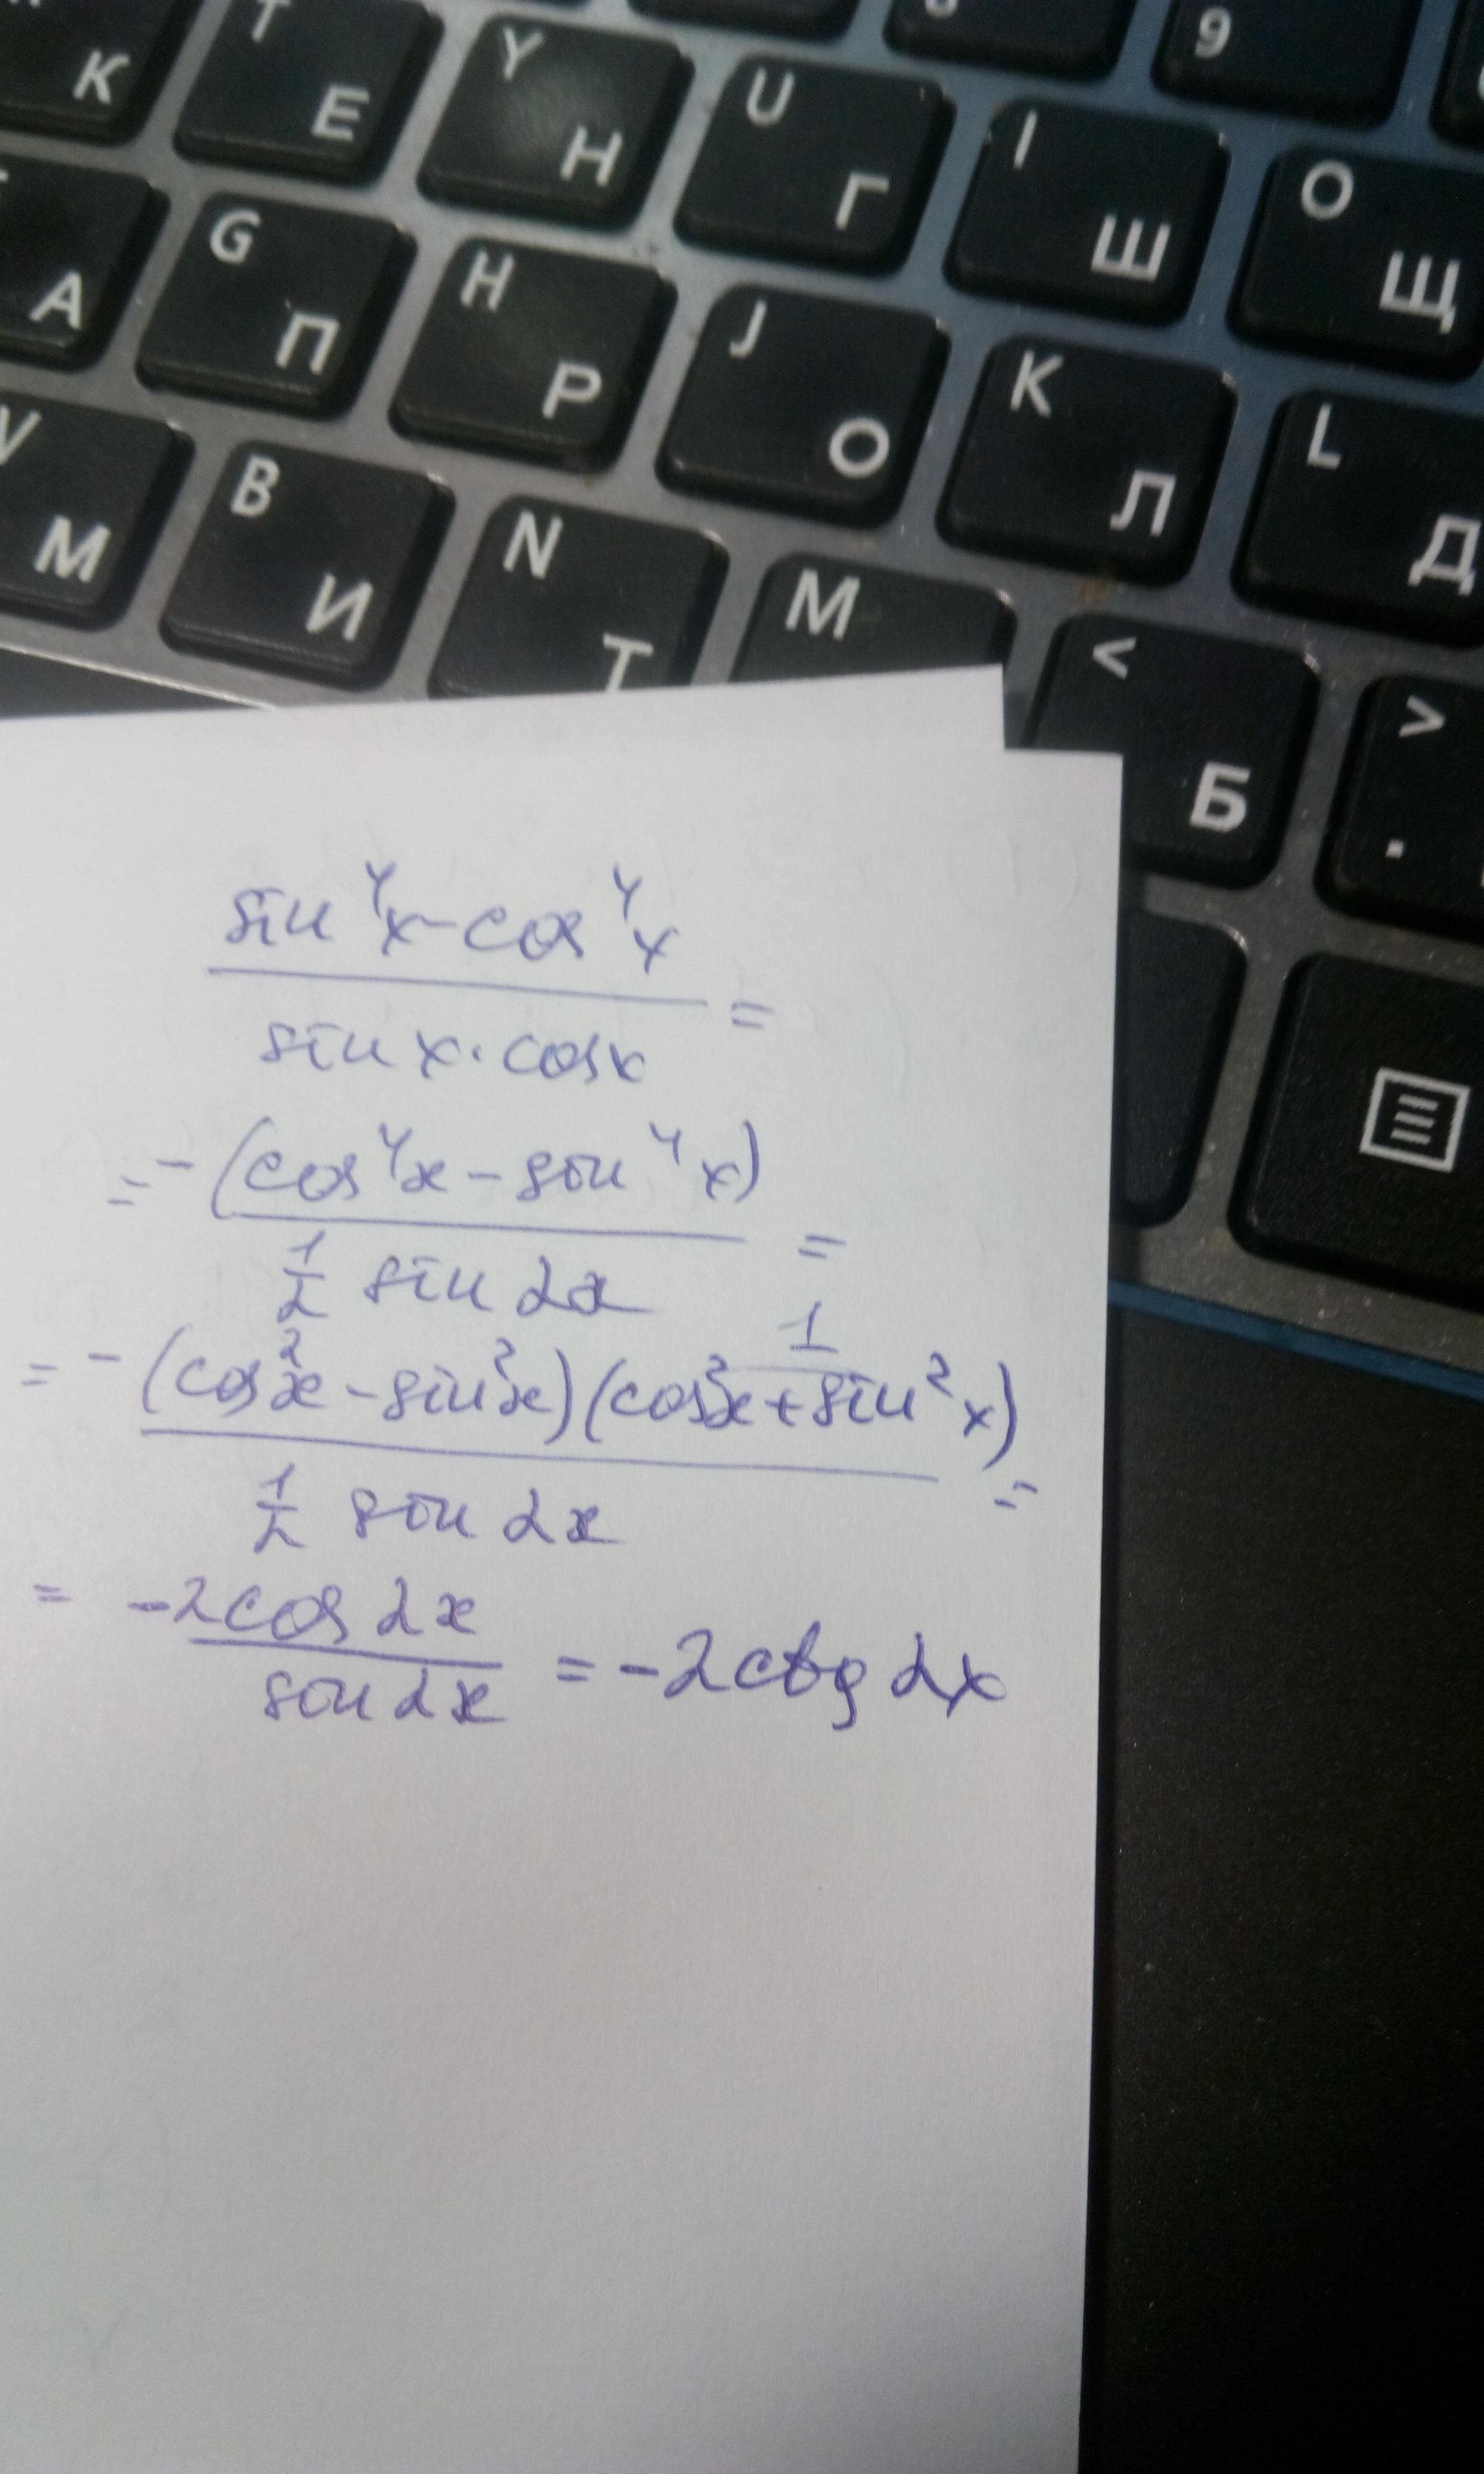 9
К
T
Е
Y
Н
U
Г
I
Ш
O
Щ
А
G
П
H
Р
J
О
K
Л
L
Д
V
М
B
И
N
Т
M
<
Б
>
.
sin⁴x - cos⁴x
sin x · cos x
=
= -(cos⁴x - sin⁴x)
1/2 sin 2x
=
1
= -(cos²x - sin²x)(cos²x + sin²x)
1/2 sin 2x
=
= -2cos 2x
sin 2x
= -2ctg 2x